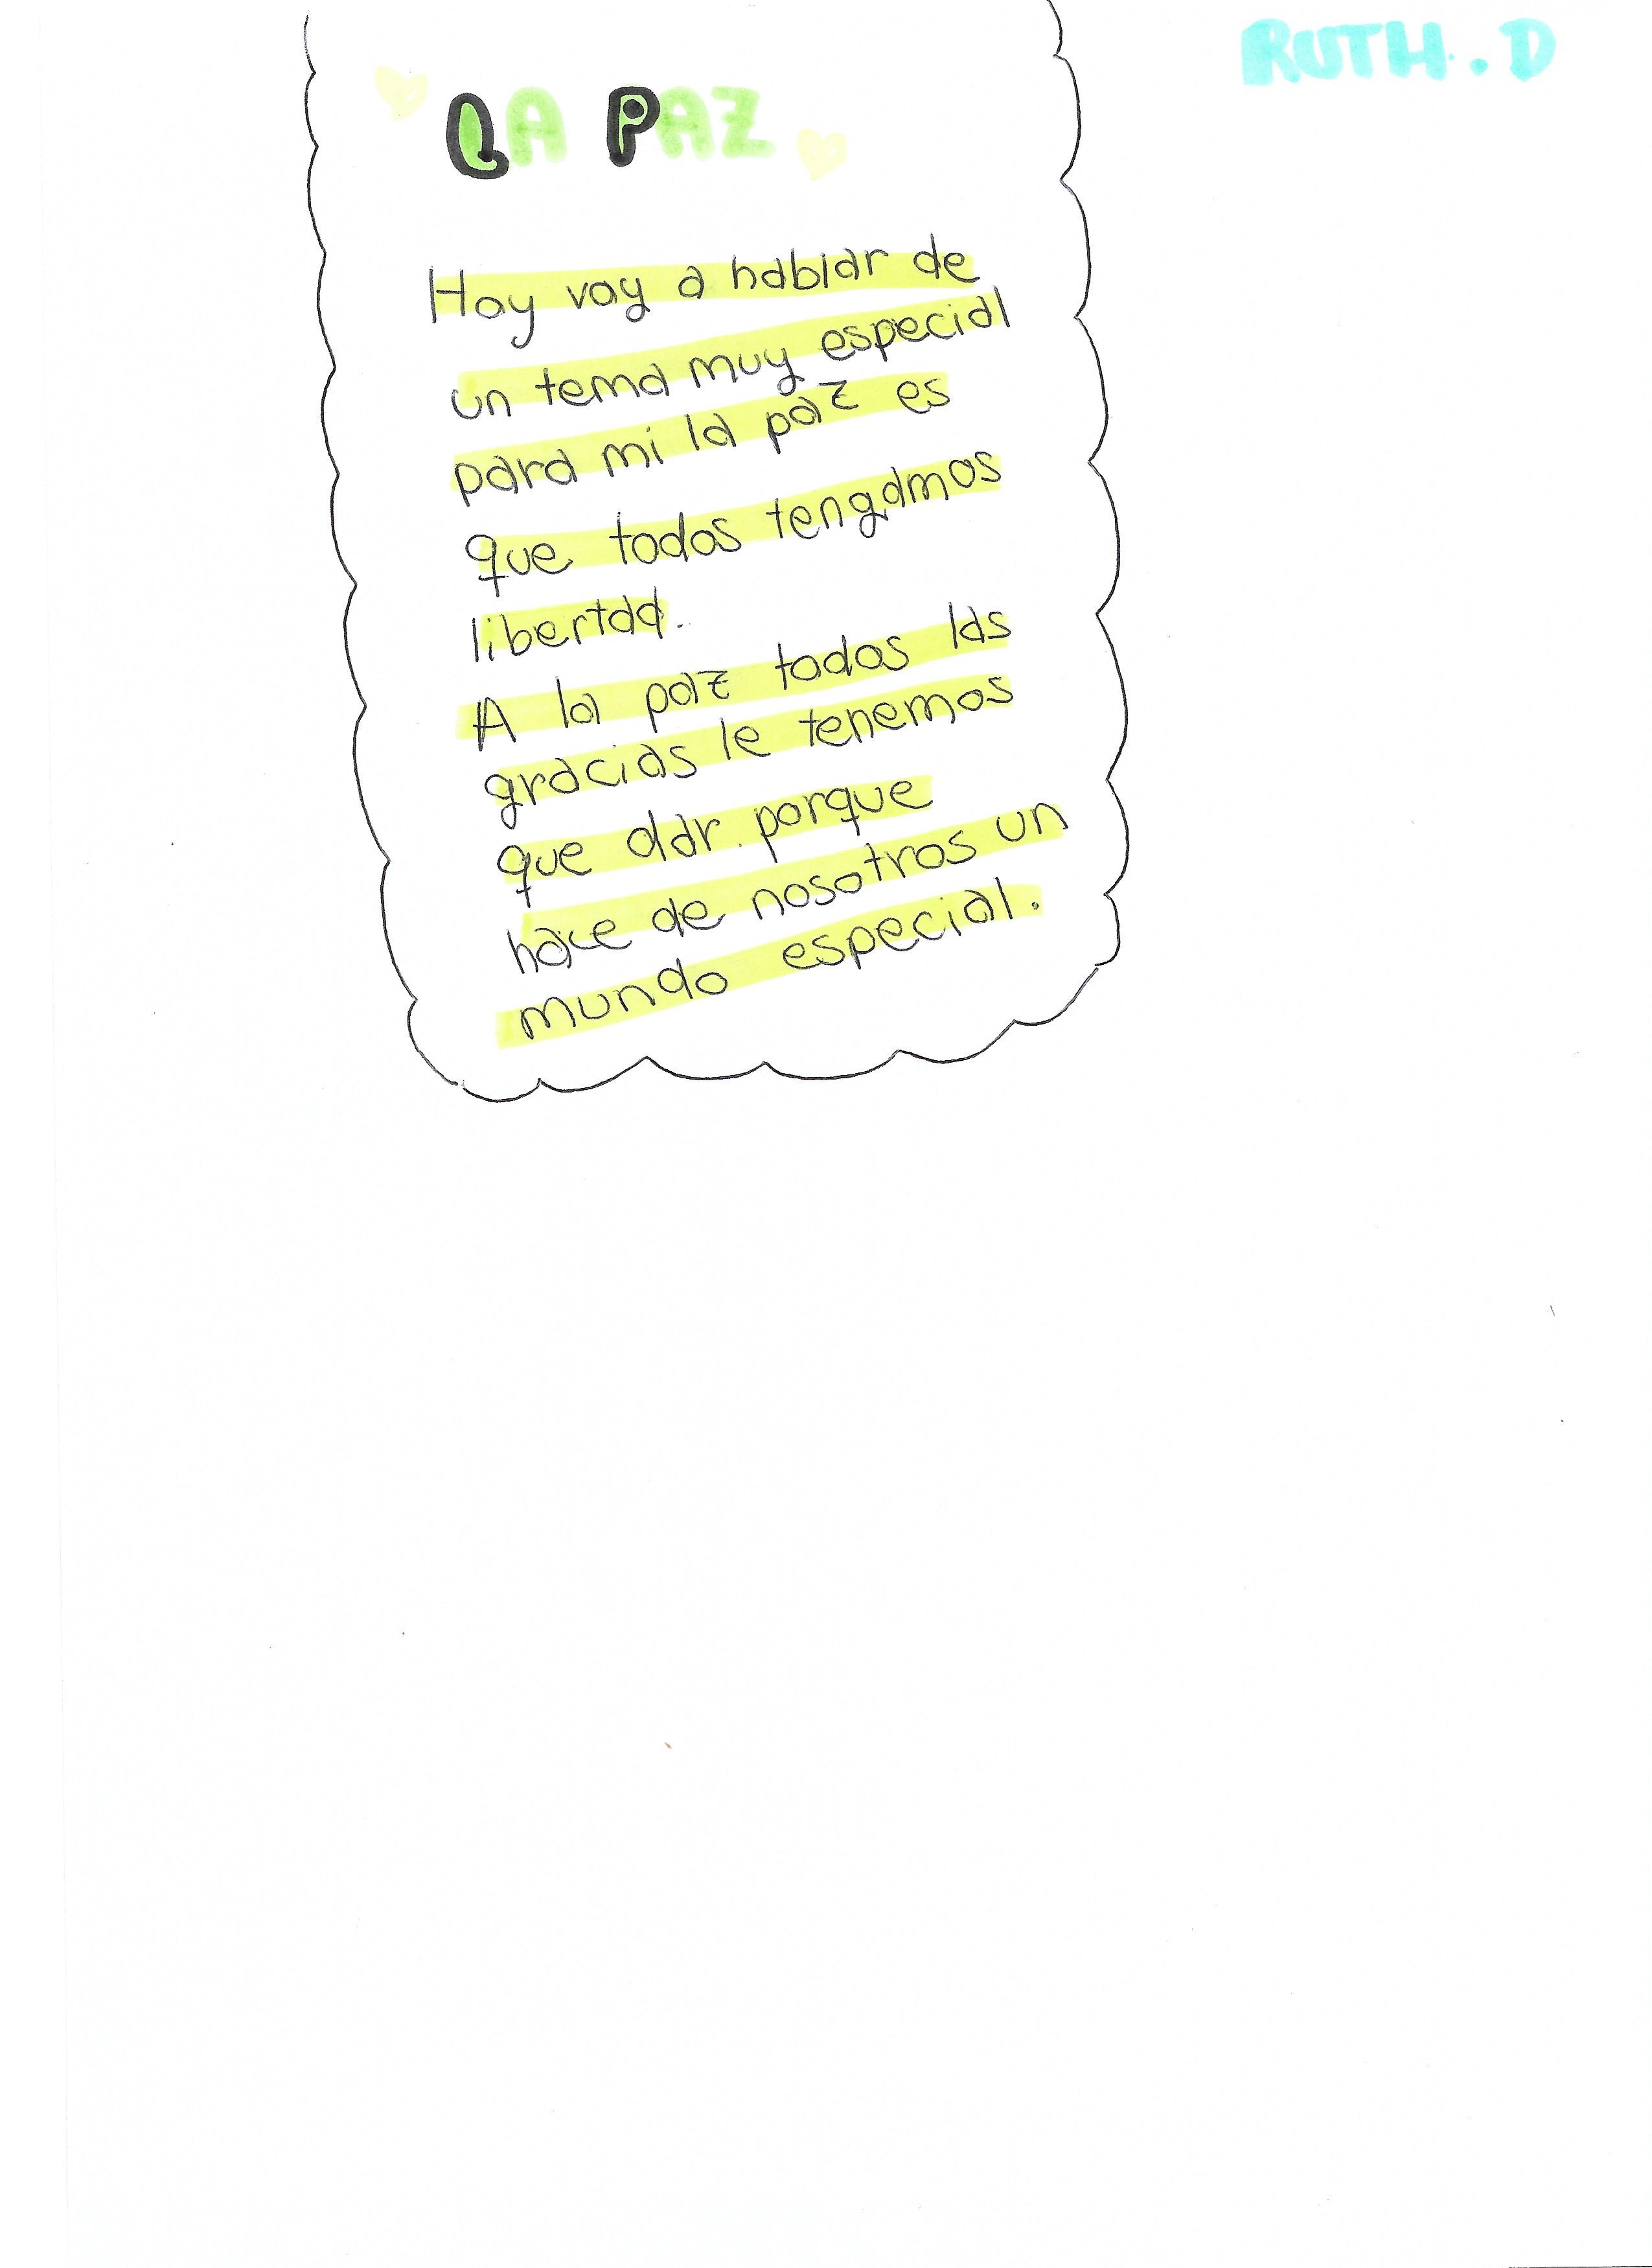 RUTH. D
LA PAZ
Hoy voy a hablar de
un tema muy especial
para mi la paz es
que todos tengamos
libertad.
A la paz todos las
gracias le tenemos
que dar porque
hace de nosotros un
mundo especial.